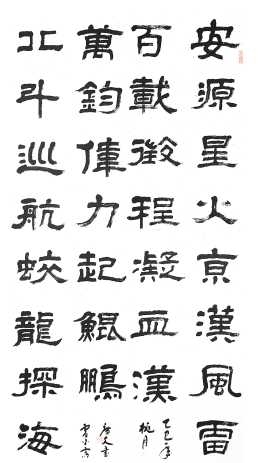 安源星火京漢風雷
百載徵程凝血漢
乙巳年
桃月
北斗巡航蛟龍探海
萬鈞偉力起鯤鵬